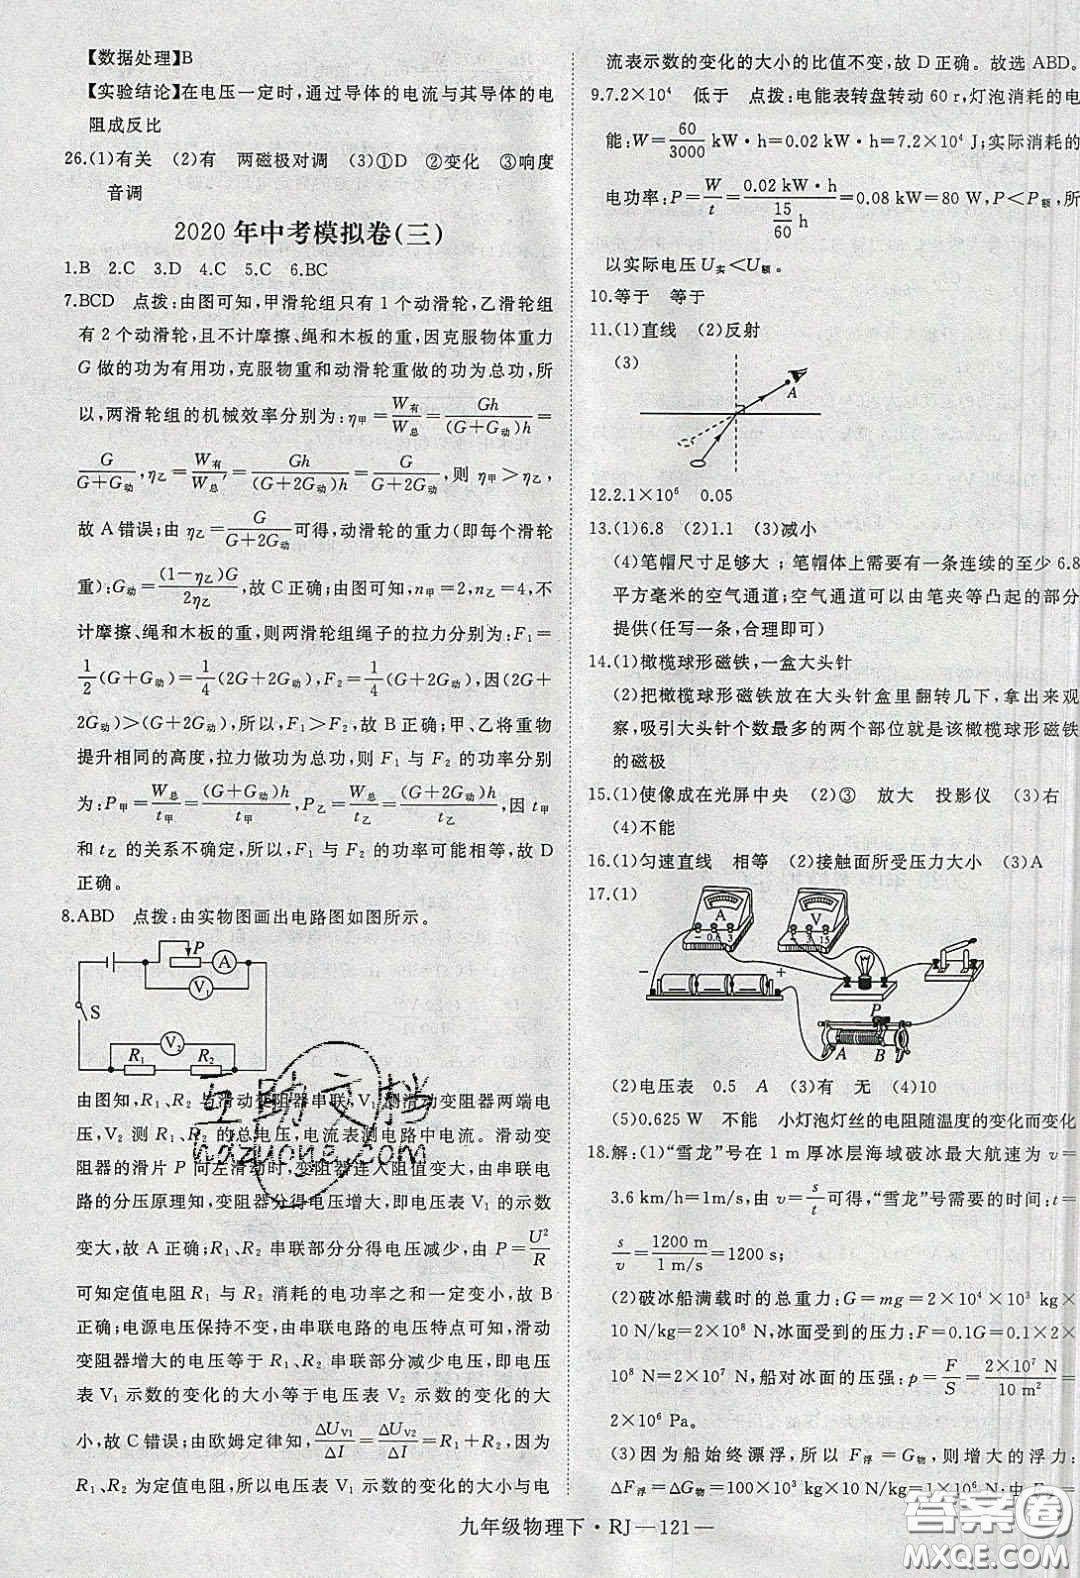 【数据处理】B
【实验结论】在电压一定时，通过导体的电流与其导体的电
阻成反比
26.(1)有关 (2)有 两磁极对调 (3)①D ②变化 ③响度
音调
2020年中考模拟卷(三)
1.B 2.C 3.D 4.C 5.C 6.BC
7.BCD 点拨：由图可知，甲滑轮组只有1个动滑轮，乙滑轮组
有2个动滑轮，且不计摩擦、绳和木板的重，因克服物体重力
G做的功为有用功，克服物重和动滑轮重做的功为总功，所
以，两滑轮组的机械效率分别为：η甲=W有/W总=Gh/(G+G动)h=
G/G+G动，η乙=W有/W总′=Gh/(G+2G动)h=G/G+2G动，则η甲>η乙，
故A错误；由η乙=G/G+2G动可得，动滑轮的重力(即每个滑轮
重)：G动=(1-η乙)G/2η乙，故C正确；由图可知，n甲=2，n乙=4，不
计摩擦、绳和木板的重，则两滑轮组绳子的拉力分别为：F₁=
1/2(G+G动)=1/4(2G+2G动)，F₂=1/4(G+2G动)，因(2G+
2G动)>(G+2G动)，所以，F₁>F₂，故B正确；甲、乙将重物
提升相同的高度，拉力做功为总功，则F₁与F₂的功率分别
为：P甲=W总/t甲=(G+G动)h/t甲，P乙=W总/t乙=(G+2G动)h/t乙，因t甲
和t乙的关系不确定，所以，F₁与F₂的功率可能相等，故D
正确。
8.ABD 点拨：由实物图画出电路图如图所示。
P
A
V₁
S
V₂
R₁ R₂
由图知，R₁、R₂与滑动变阻器串联，V₁测滑动变阻器两端电
压，V₂测R₁、R₂的总电压，电流表测电路中电流。滑动变
阻器的滑片P向左滑动时，变阻器连入阻值变大，由串联电
路的分压原理知，变阻器分得电压增大，即电压表V₁的示数
变大，故A正确；R₁、R₂串联部分分得电压减少，由P=U²/R
可知定值电阻R₁与R₂消耗的电功率之和一定变小，故B
正确；电源电压保持不变，由串联电路的电压特点可知，滑动
变阻器增大的电压等于R₁、R₂串联部分减少电压，即电压
表V₁示数的变化的大小等于电压表V₂示数的变化的大
小，故C错误；由欧姆定律知，ΔUV1/ΔI=ΔUV2/ΔI=R₁+R₂，因为
R₁、R₂为定值电阻，所以电压表V₁示数的变化的大小与电
流表示数的变化的大小的比值不变，故D正确。故选ABD。
9.7.2×10⁴ 低于 点拨：电能表转盘转动60r，灯泡消耗的电
能：W=60/3000 kW·h=0.02 kW·h=7.2×10⁴ J；实际消耗的
电功率：P=W/t=0.02 kW·h/(15/60 h)=0.08 kW=80 W，P<P额，所
以实际电压U实<U额。
10.等于 等于
11.(1)直线 (2)反射
(3)
A
12.2.1×10⁶ 0.05
13.(1)6.8 (2)1.1 (3)减小
(4)笔帽尺寸足够大；笔帽体上需要有一条连续的至少6.8
平方毫米的空气通道；空气通道可以由笔夹等凸起的部分
提供(任写一条，合理即可)
14.(1)橄榄球形磁铁，一盒大头针
(2)把橄榄球形磁铁放在大头针盒里翻转几下，拿出来观
察，吸引大头针个数最多的两个部位就是该橄榄球形磁铁
的磁极
15.(1)使像成在光屏中央 (2)③ 放大 投影仪 (3)右
(4)不能
16.(1)匀速直线 相等 (2)接触面所受压力大小 (3)A
17.(1)
A V
- 0.6 3 - 3 15
- +
P
A B
(2)电压表 0.5 A (3)有 无 (4)10
(5)0.625 W 不能 小灯泡灯丝的电阻随温度的变化而变化
18.解：(1)“雪龙”号在1 m厚冰层海域破冰最大航速为v=
3.6 km/h=1m/s，由v=s/t可得，“雪龙”号需要的时间：t=
s/v=1200 m/1 m/s=1200 s；
(2)破冰船满载时的总重力：G=mg=2×10⁴×10³ kg×
10 N/kg=2×10⁸ N，冰面受到的压力：F=0.1G=0.1×2×
10⁸ N=2×10⁷ N，船对冰面的压强：p=F/S=2×10⁷ N/10 m²=
2×10⁶ Pa。
(3)因为船始终漂浮，所以F浮=G物，则增大的浮力：
ΔF浮=ΔG物=100×10³ kg×10 N/kg=1×10⁶ N，由F
九年级物理下·RJ—121—
互助文档
hdzuowen.com
答案圈
MXQE.COM